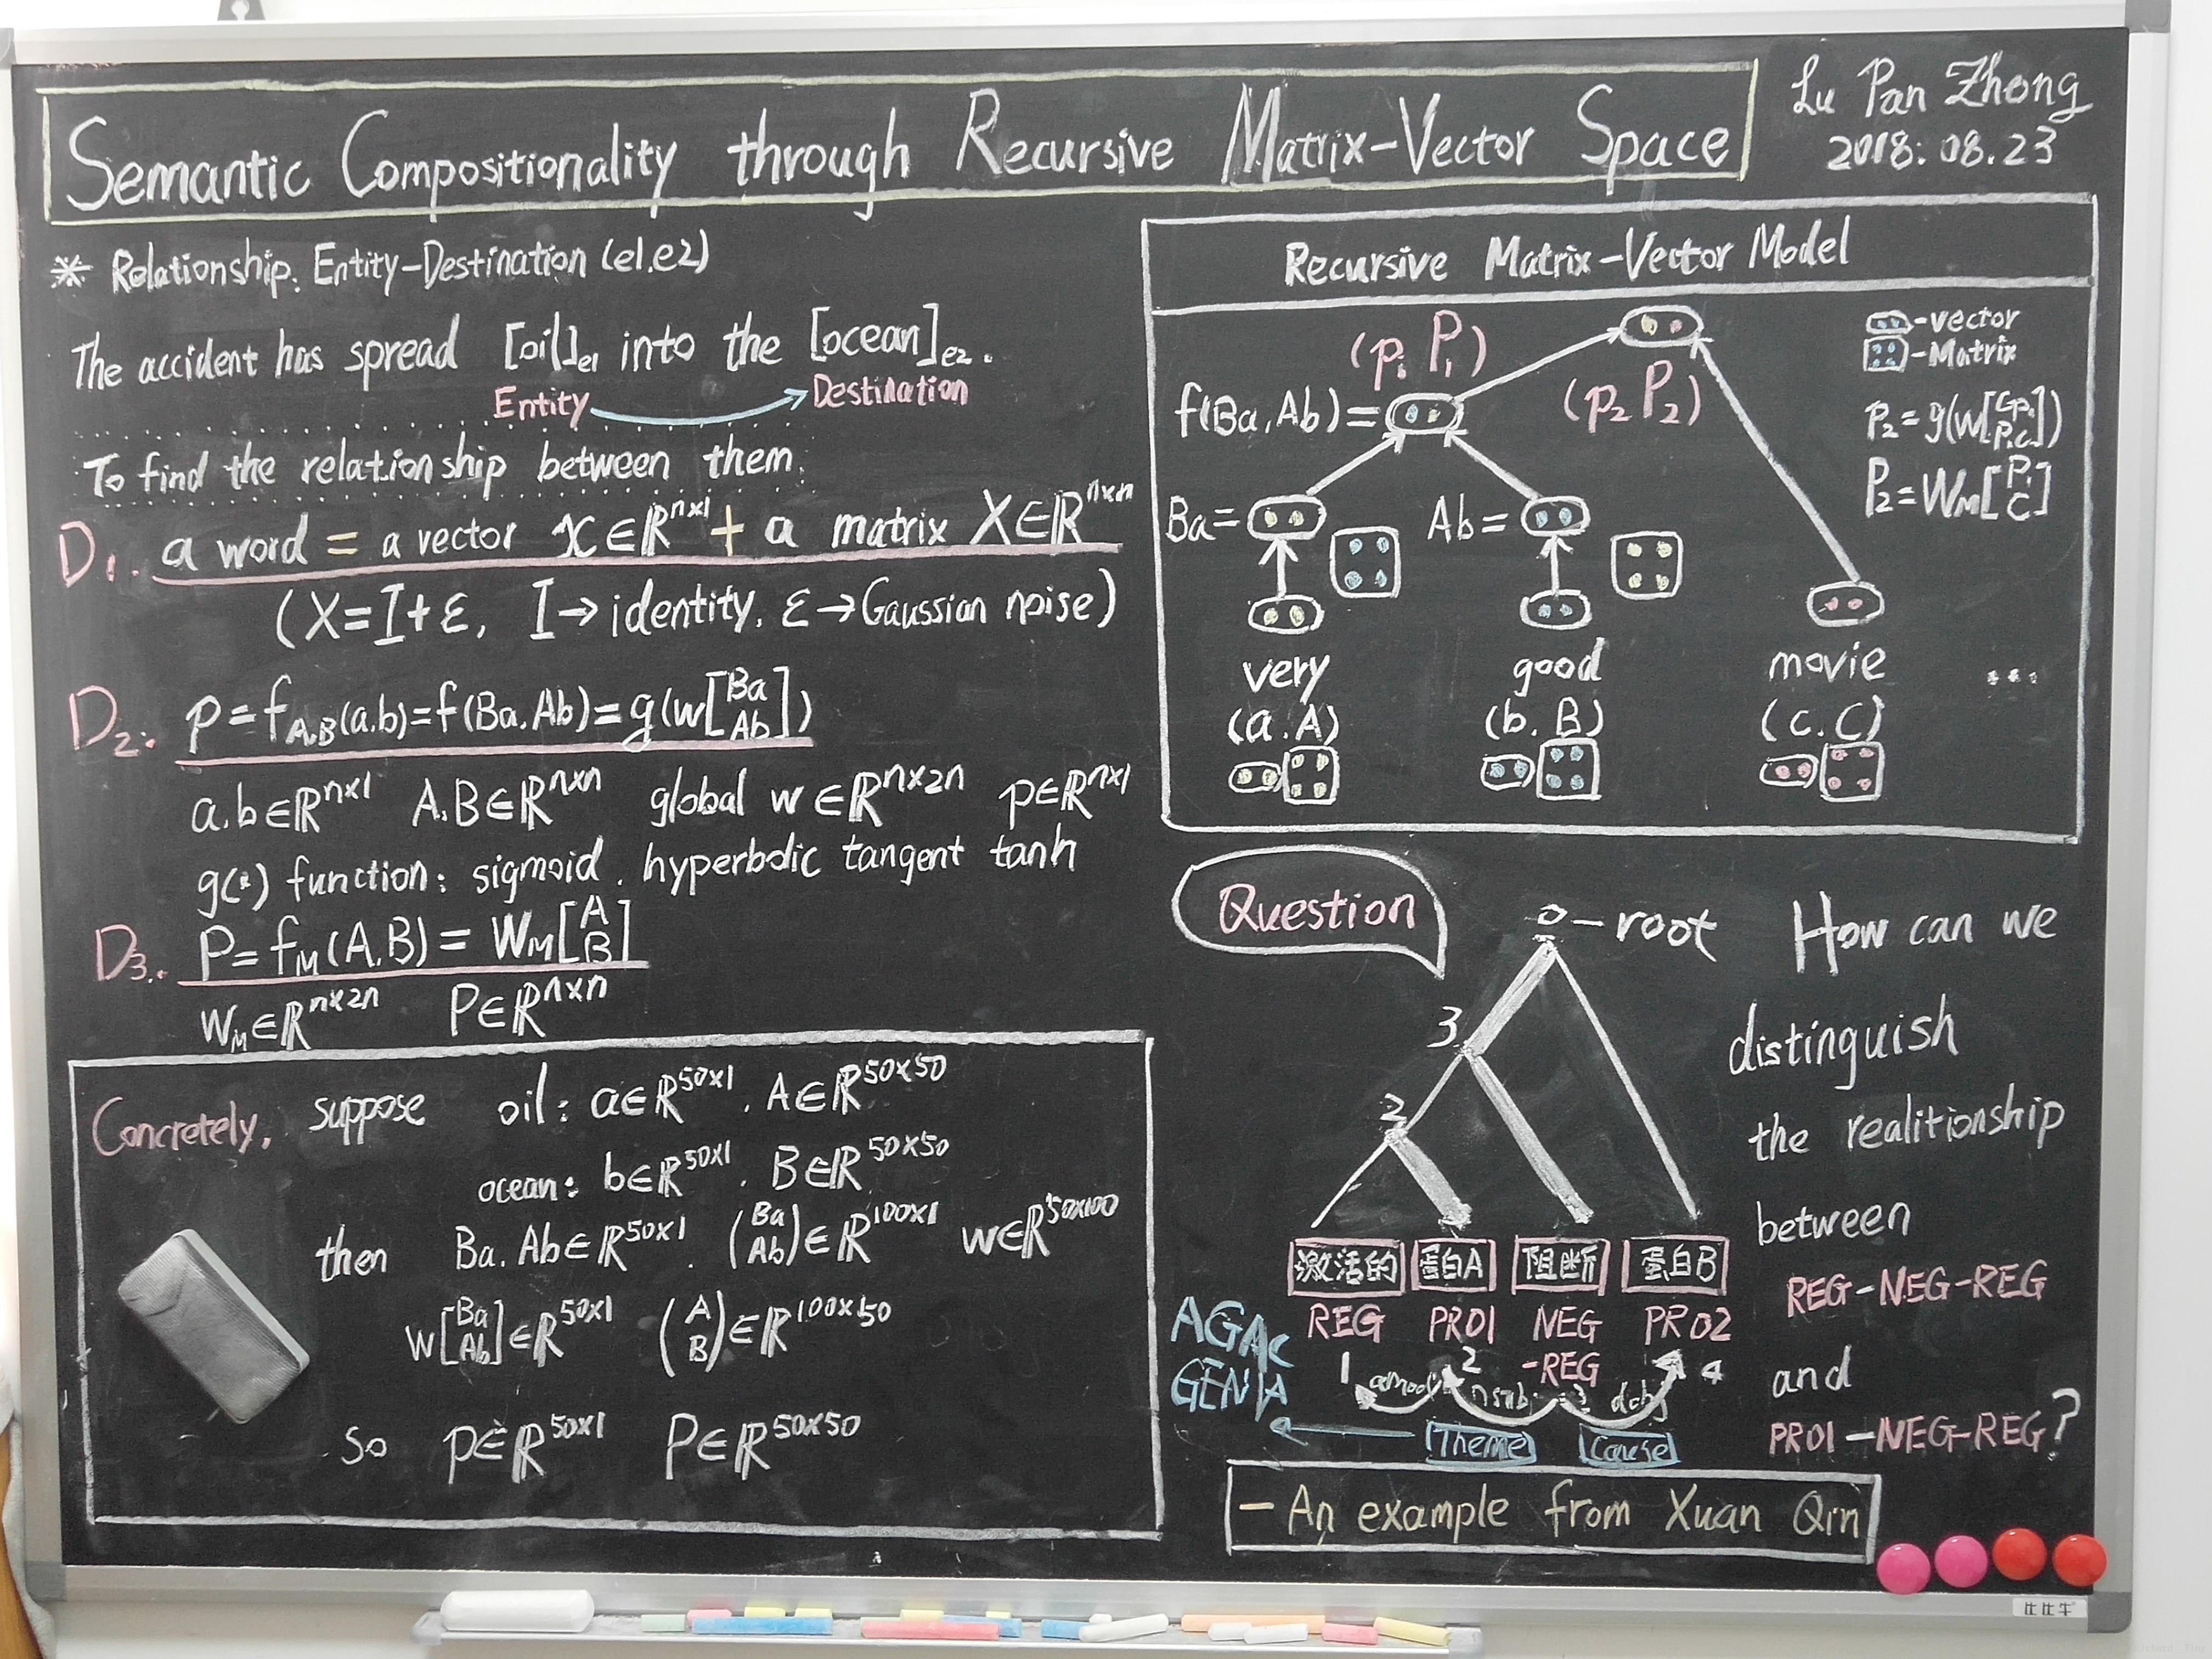 Semantic Compositionality through Recursive Matrix-Vector Space
Lu Pan Zhong
2018.08.23
* Relationship: Entity-Destination (e1.e2)
The accident has spread [oil]e1 into the [ocean]e2.
Entity → Destination
To find the relationship between them.
D1. a word = a vector x∈R^n×1 + a matrix X∈R^n×n
(X=I+ε, I→identity, ε→Gaussian noise)
D2. p=f_A.B(a.b)=f(Ba.Ab)=g(w[Ba Ab])
a.b∈R^n×1 A.B∈R^n×n global w∈R^n×2n p∈R^n×1
g(*) function: sigmoid. hyperbolic tangent tanh
D3. P=f_M(A.B)=W_M[A B]
W_M∈R^n×2n P∈R^n×n
Concretely, suppose oil: a∈R^50×1. A∈R^50×50
ocean: b∈R^50×1. B∈R^50×50
then Ba. Ab∈R^50×1. (Ba Ab)∈R^100×1 w∈R^50×100
w[Ba Ab]∈R^50×1 (A B)∈R^100×50
So p∈R^50×1 P∈R^50×50
Recursive Matrix-Vector Model
(p1 P1)
-vector
-Matrix
f(Ba.Ab)=
(p2 P2)
P2=g(w[Cp1 P1c])
P2=W_M[P1 C]
Ba=
Ab=
very good movie ...
(a.A) (b.B) (c.C)
Question
0-root
3
2
激活的 蛋白A 阻断 蛋白B
REG PRO1 NEG PRO2
-REG
1 2 3 4
amod nsubj dobj
AGAC
GENIA
Theme Cause
How can we
distinguish
the realitionship
between
REG-NEG-REG
and
PRO1-NEG-REG?
- An example from Xuan Qin
比比牛